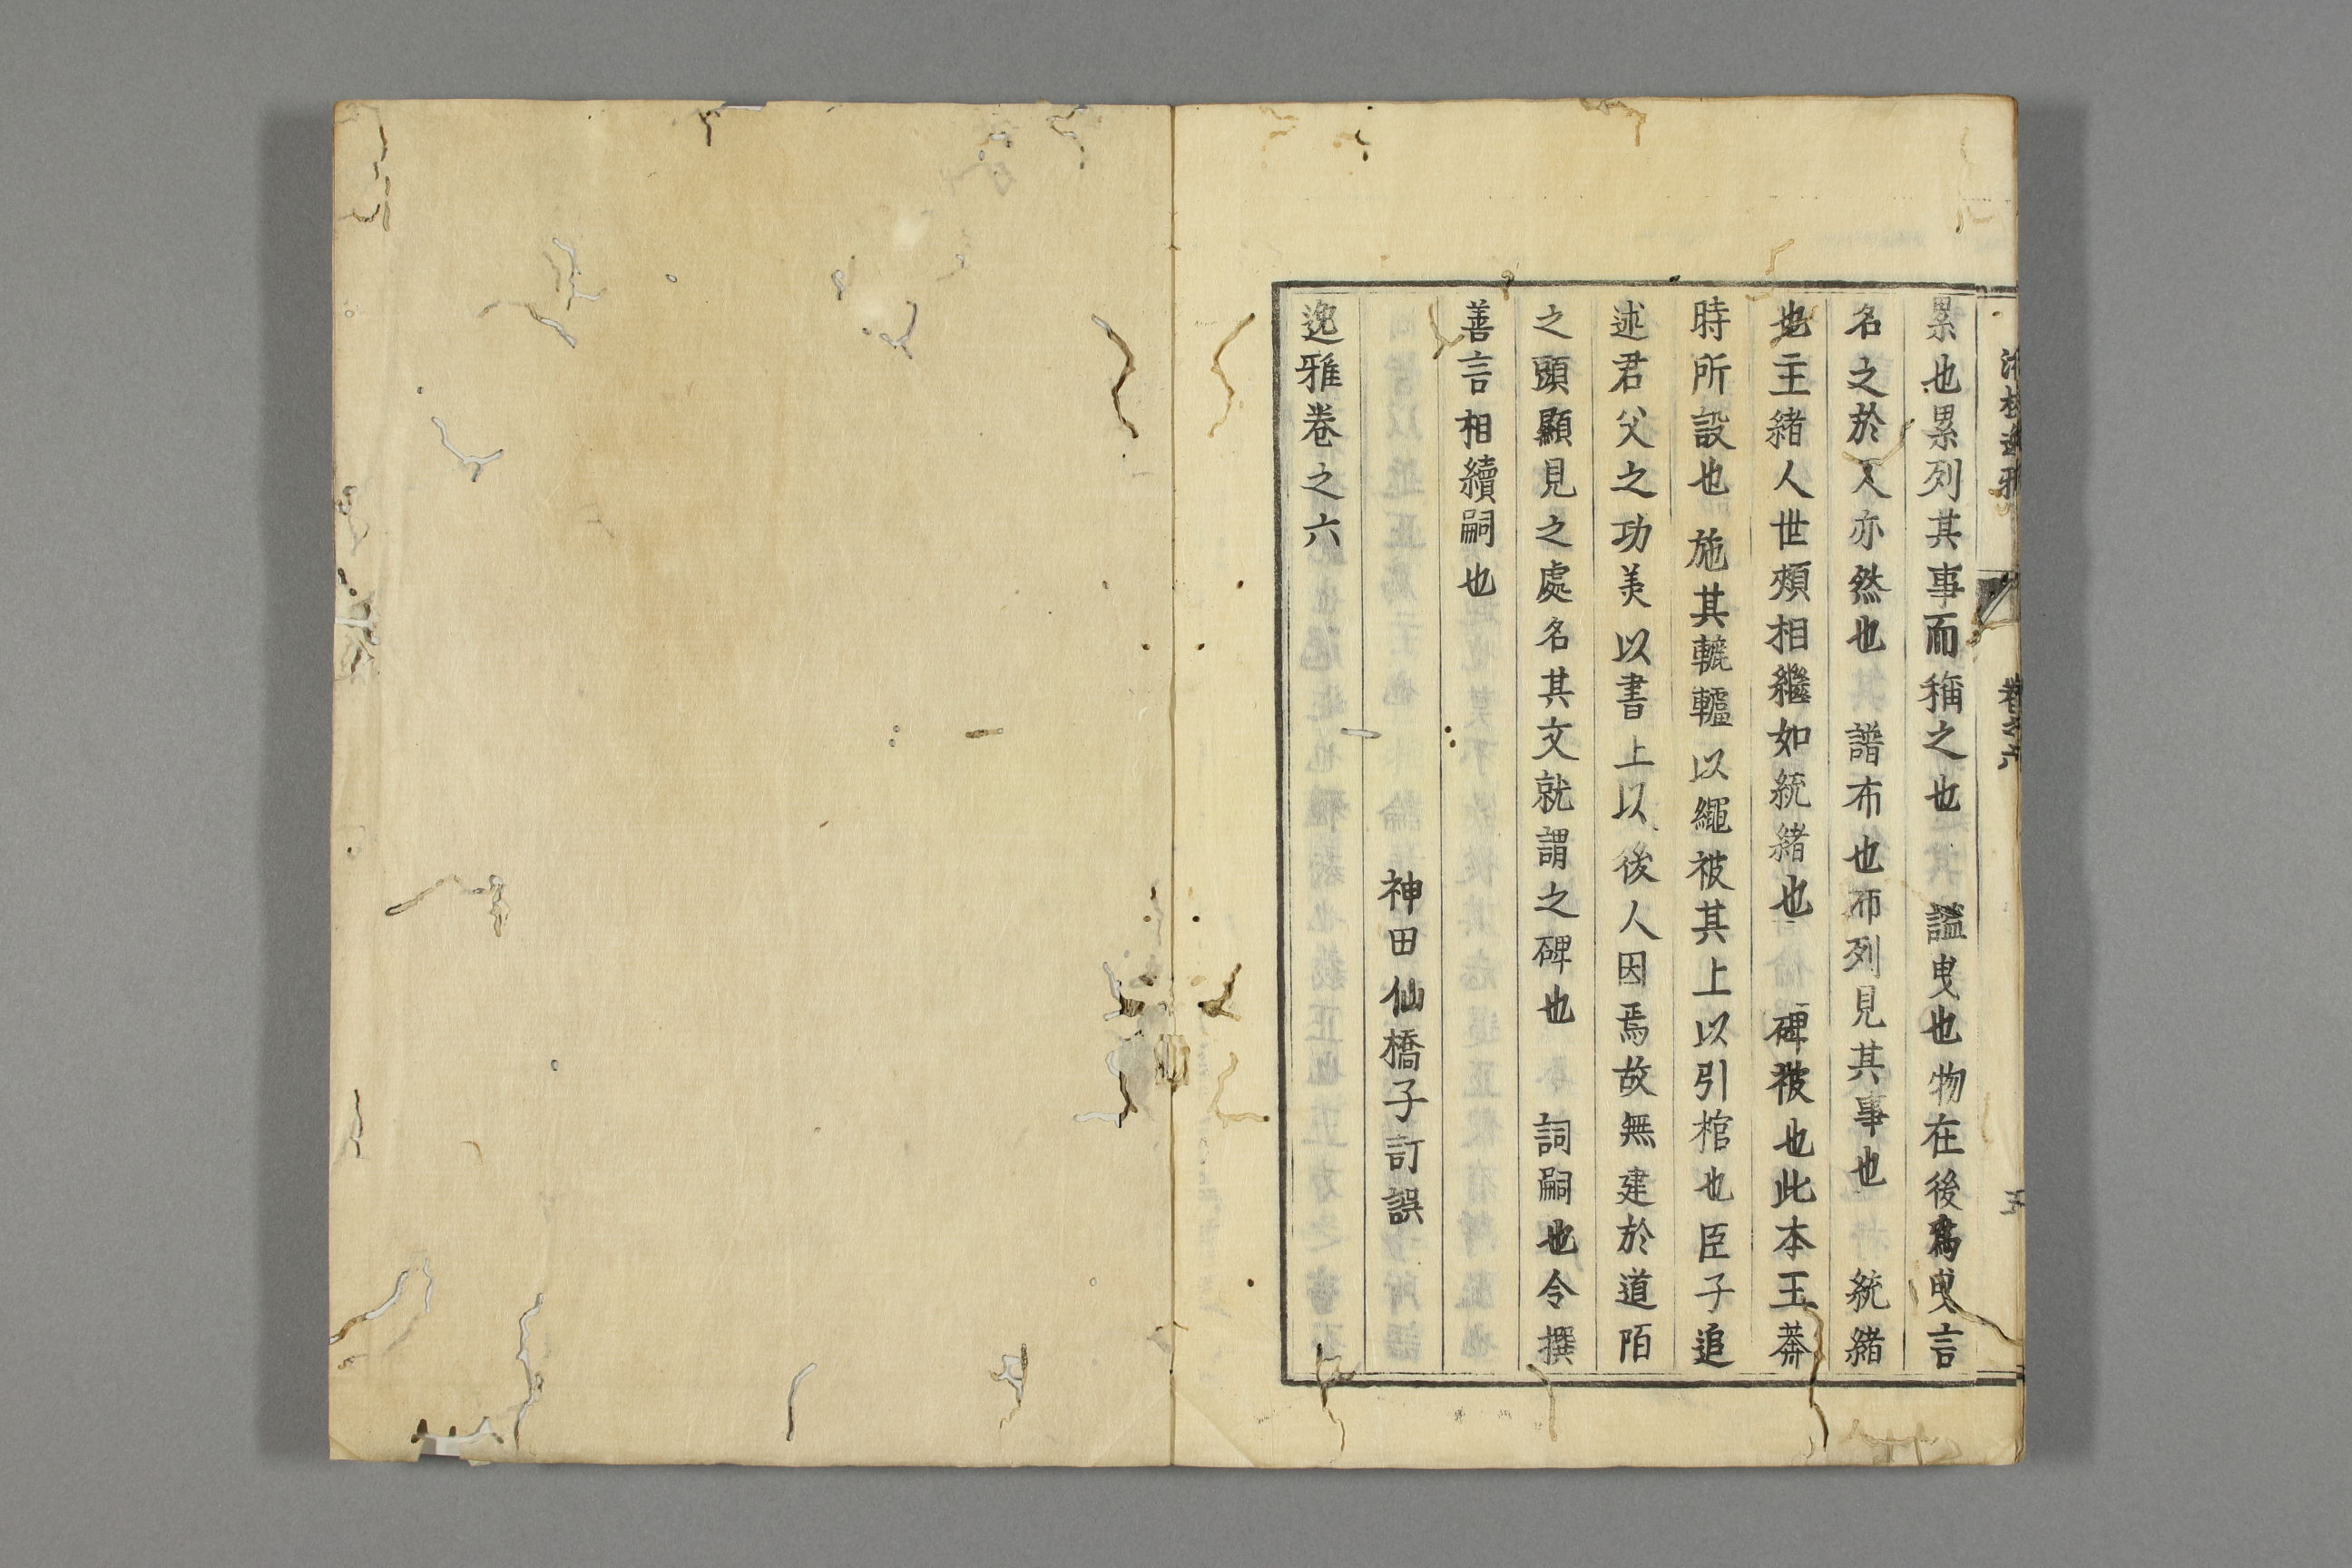 累也累列其事而稱之也　諡曳也物在後爲曳言
名之於人亦然也　譜布也布列見其事也　統緒
也主緒人世類相繼如統緒也　碑被也此本王莽
時所設也施其轆轤以繩被其上以引棺也臣子追
述君父之功美以書上以後人因焉故無建於道陌
之頭顯見之處名其文就謂之碑也　詞嗣也令撰
善言相續嗣也
神田仙橋子訂誤
逸雅卷之六